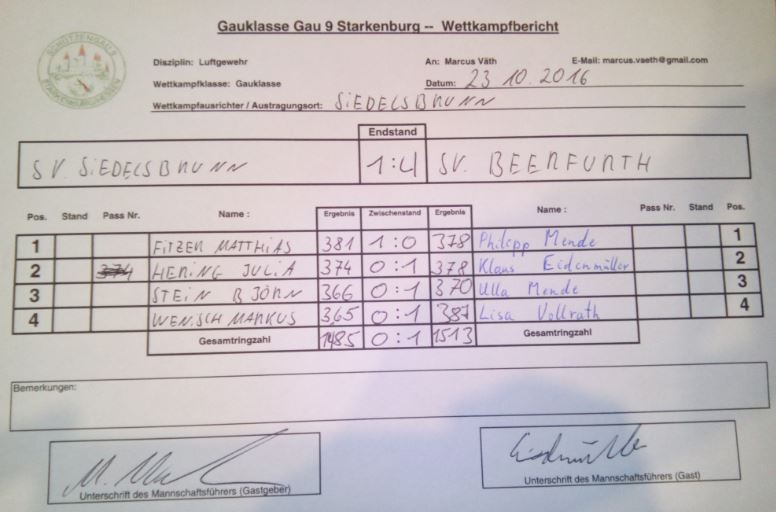 Gauklasse Gau 9 Starkenburg -- Wettkampfbericht
Disziplin: Luftgewehr An: Marcus Väth E-Mail: marcus.vaeth@gmail.com
Wettkampfklasse: Gauklasse Datum: 23 10. 2016
Wettkampfausrichter / Austragungsort: SiEDELSBRUNN
Endstand
SV. SiEDELSBRUNN 1:4 SV. BEERFURTH
Pos. Stand Pass Nr. Name : Ergebnis Zwischenstand Ergebnis Name : Pass Nr. Stand Pos.
1 FiTZER MATTHiAS 381 1:0 378 Philipp Mende 1
2 374 HERING JULiA 374 0:1 378 Klaus Eidenmüller 2
3 STEiN BJÖRN 366 0:1 370 Ulla Mende 3
4 WENiSCH MARKUS 365 0:1 387 Lisa Vollrath 4
Gesamtringzahl 1485 0:1 1513 Gesamtringzahl
Bemerkungen:
Unterschrift des Mannschaftsführers (Gastgeber) Unterschrift des Mannschaftsführers (Gast)